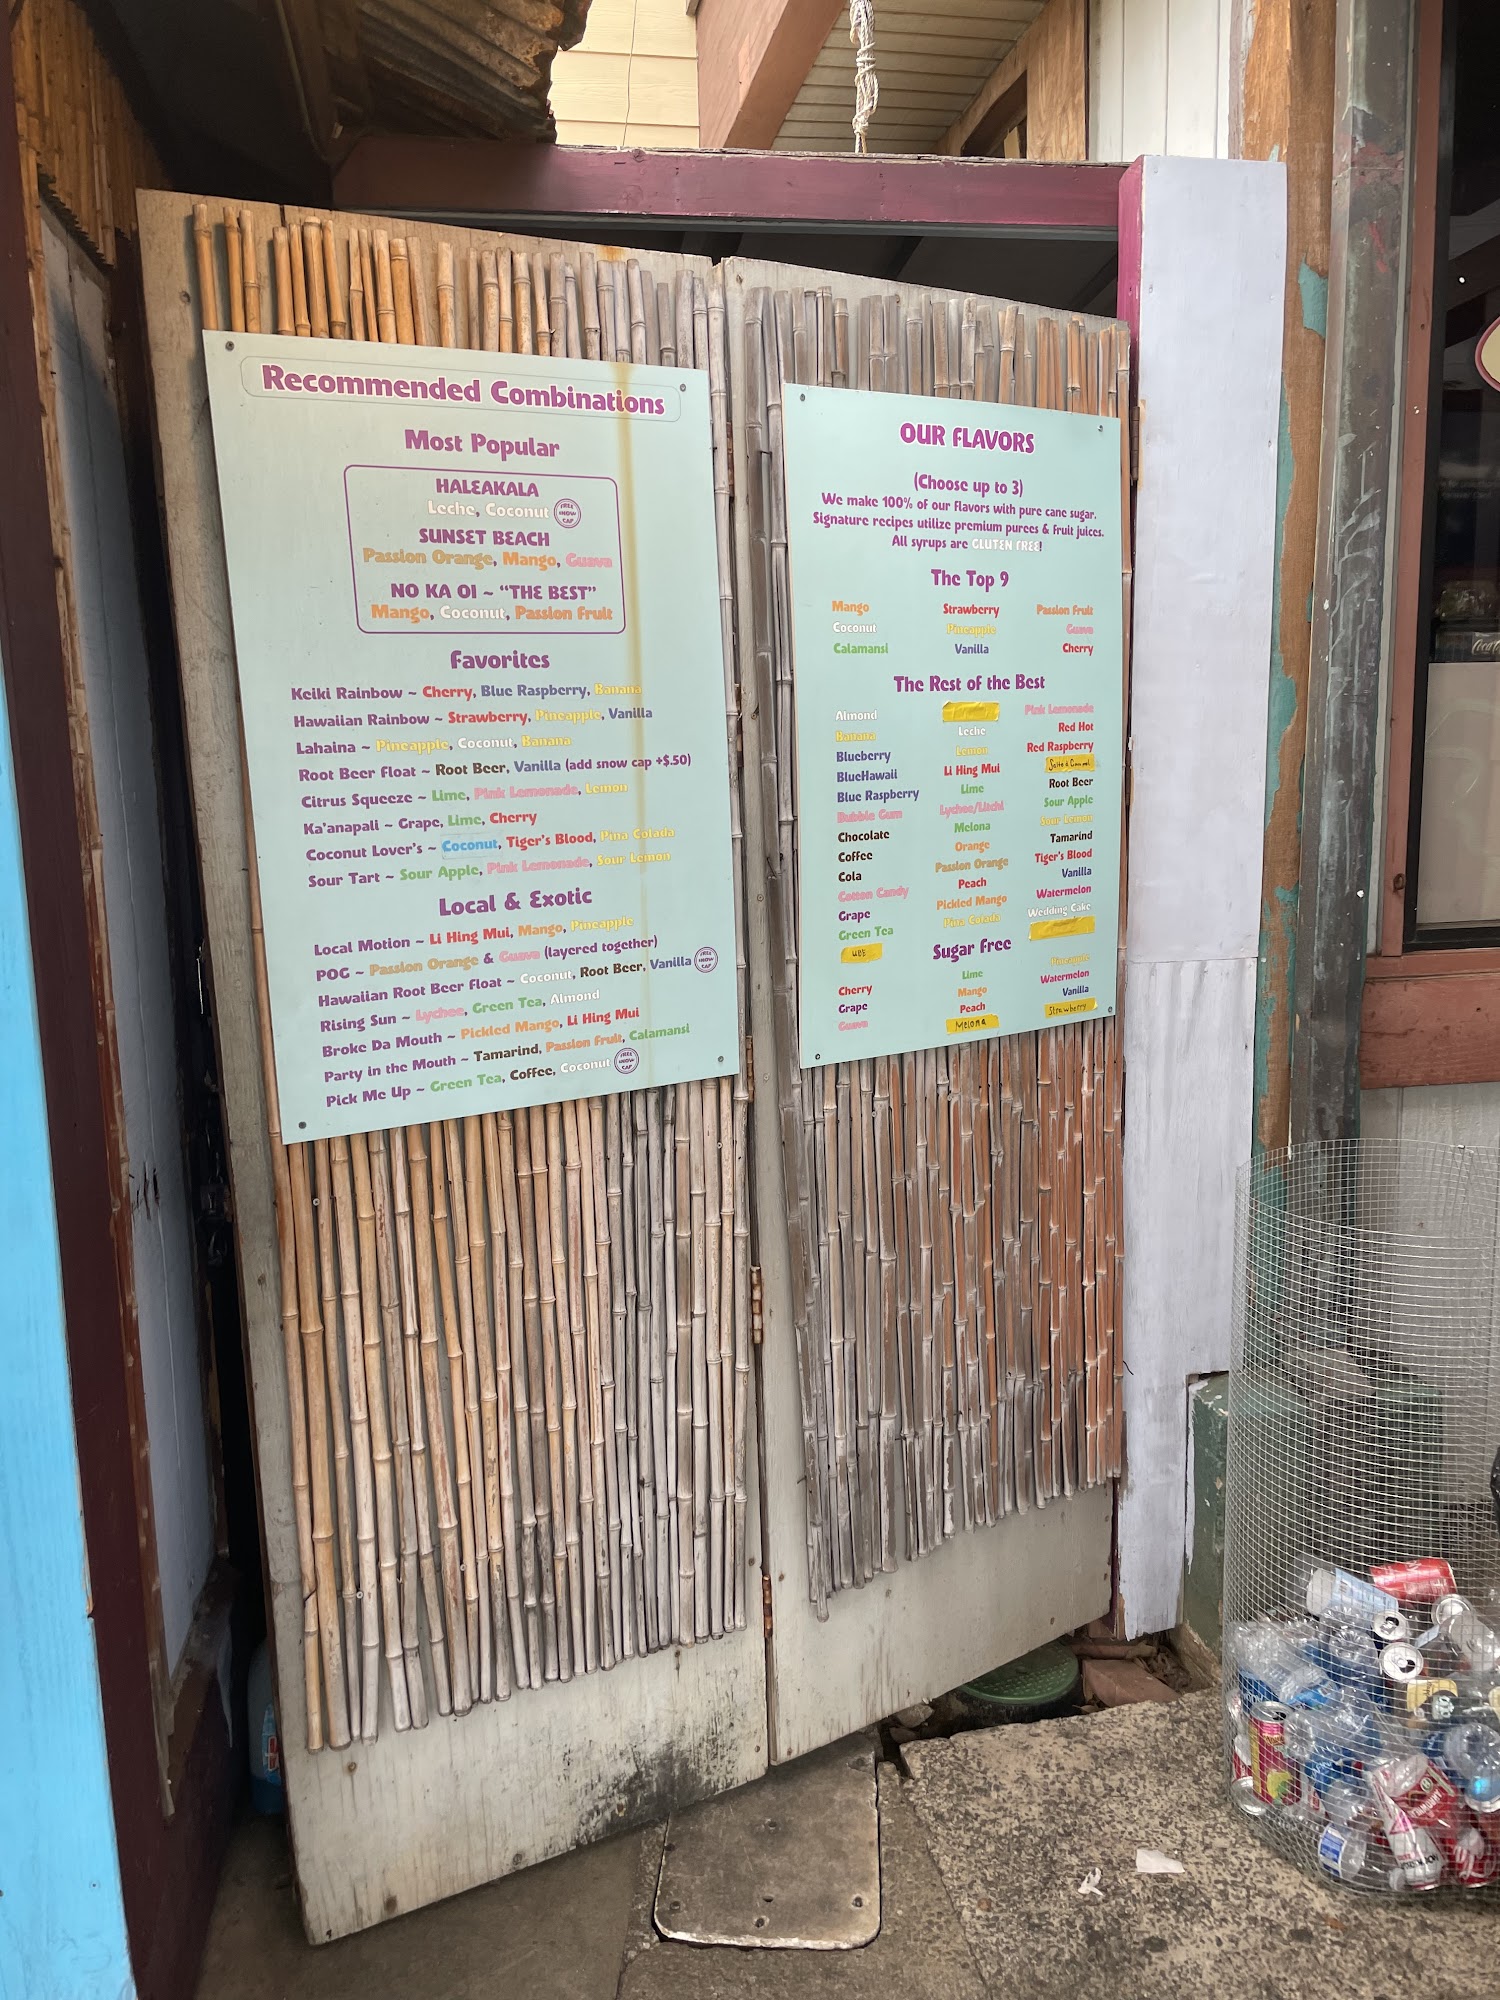 Recommended Combinations
Most Popular
HALEAKALA
Leche, Coconut FREE SNOW CAP
SUNSET BEACH
Passion Orange, Mango, Guava
NO KA OI ~ "THE BEST"
Mango, Coconut, Passion Fruit
Favorites
Keiki Rainbow ~ Cherry, Blue Raspberry, Banana
Hawaiian Rainbow ~ Strawberry, Pineapple, Vanilla
Lahaina ~ Pineapple, Coconut, Banana
Root Beer Float ~ Root Beer, Vanilla (add snow cap +$.50)
Citrus Squeeze ~ Lime, Pink Lemonade, Lemon
Ka'anapali ~ Grape, Lime, Cherry
Coconut Lover's ~ Coconut, Tiger's Blood, Pina Colada
Sour Tart ~ Sour Apple, Pink Lemonade, Sour Lemon
Local & Exotic
Local Motion ~ Li Hing Mui, Mango, Pineapple
POG ~ Passion Orange & Guava (layered together)
Hawaiian Root Beer Float ~ Coconut, Root Beer, Vanilla FREE SNOW CAP
Rising Sun ~ Lychee, Green Tea, Almond
Broke Da Mouth ~ Pickled Mango, Li Hing Mui
Party in the Mouth ~ Tamarind, Passion Fruit, Calamansi
Pick Me Up ~ Green Tea, Coffee, Coconut FREE SNOW CAP
OUR FLAVORS
(Choose up to 3)
We make 100% of our flavors with pure cane sugar.
Signature recipes utilize premium purees & fruit juices.
All syrups are GLUTEN FREE!
The Top 9
Mango
Coconut
Calamansi
Strawberry
Pineapple
Vanilla
Passion Fruit
Guava
Cherry
The Rest of the Best
Almond
Banana
Blueberry
BlueHawaii
Blue Raspberry
Bubble Gum
Chocolate
Coffee
Cola
Cotton Candy
Grape
Green Tea
UBE
Leche
Lemon
Li Hing Mui
Lime
Lychee/Litchi
Melona
Orange
Passion Orange
Peach
Pickled Mango
Pina Colada
Pink Lemonade
Red Hot
Red Raspberry
Root Beer
Sour Apple
Sour Lemon
Tamarind
Tiger's Blood
Vanilla
Watermelon
Wedding Cake
Sugar Free
Cherry
Grape
Guava
Lime
Mango
Peach
Melona
Pineapple
Watermelon
Vanilla
Strawberry